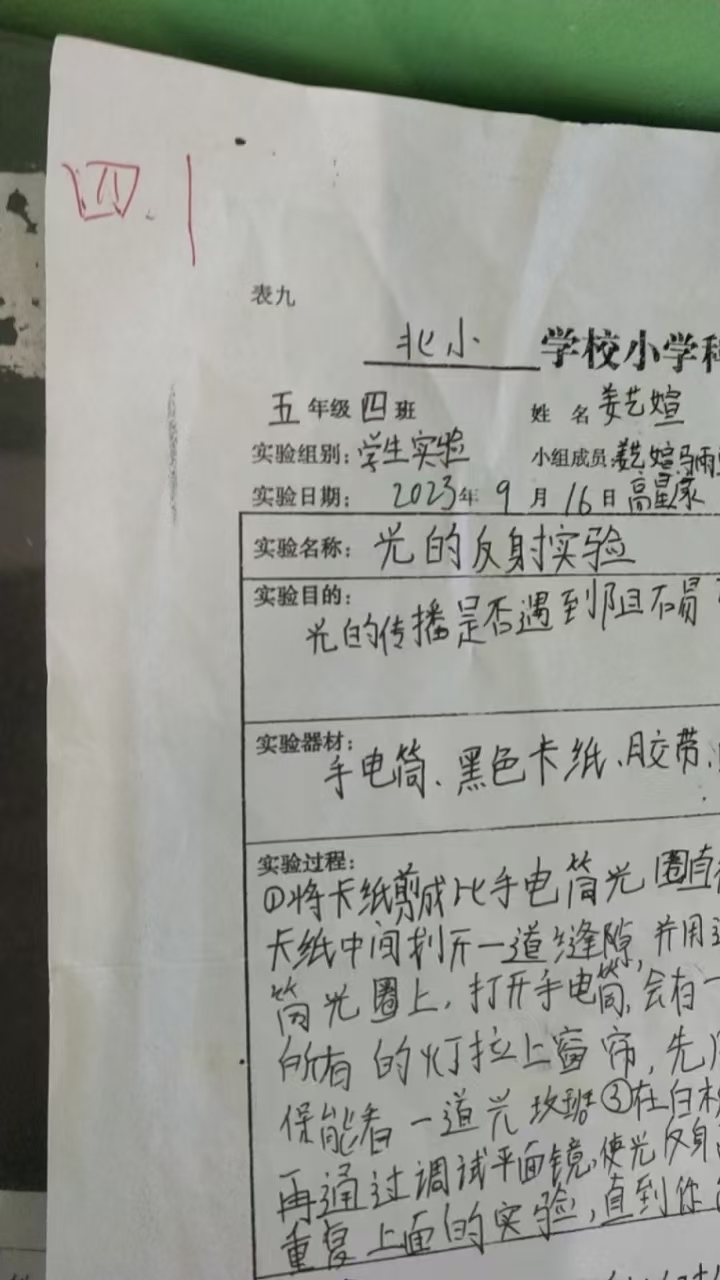 四.1
表九
北小 学校小学科
五年级四班 姓 名 姜艺媗
实验组别:学生实验 小组成员:姜艺媗
实验日期: 2023年9月16日 高星
实验名称: 光的反射实验
实验目的:
光的传播是否遇到阻不易
实验器材:
手电筒、黑色卡纸、胶带、
实验过程:
①将卡纸剪成比手电筒光圈直
卡纸中间划开一道缝隙,并用
筒光圈上,打开手电筒,会有一
所有的灯拉上窗帘,先
保能看一道光 ③在白
再通过调试平面镜,使光反射
重复上面的实验,直到你